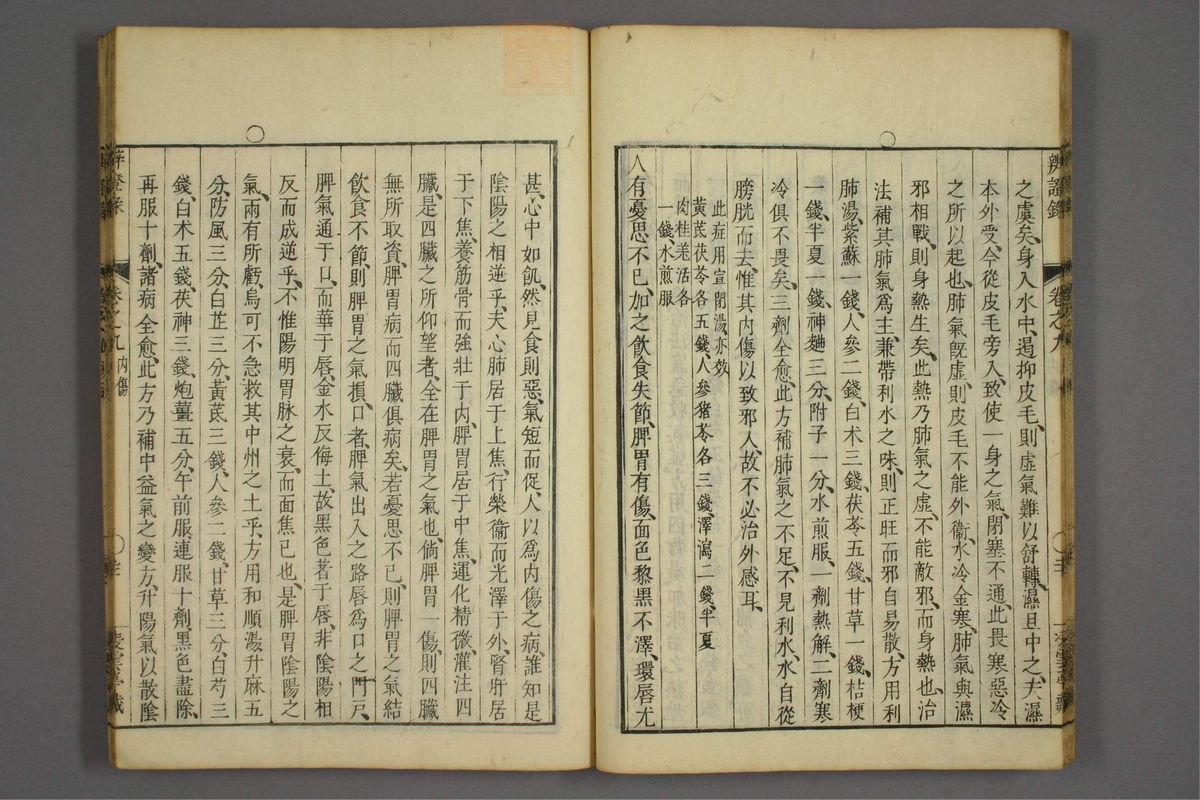 辨證錄 卷之九
之虞矣、身入水中、遏抑皮毛、則虛氣難以舒轉、濕且中之、夫濕
本外受、今從皮毛旁入、致使一身之氣、閉塞不通、此畏寒惡冷
之所以起也、肺氣旣虛、則皮毛不能外衞、水冷金寒、肺氣與濕
邪相戰、則身熱生矣、此熱乃肺氣之虛、不能敵邪、而身熱也、治
法補其肺氣爲主、兼帶利水之味、則正旺而邪自易散、方用利
肺湯、紫蘇一錢、人參二錢、白术三錢、茯苓五錢、甘草一錢、桔梗
一錢、半夏一錢、神麯三分、附子一分、水煎服、一劑熱解、二劑寒
冷俱不畏矣、三劑全愈、此方補肺氣之不足、不見利水、水自從
膀胱而去、惟其內傷以致邪人、故不必治外感耳、
此症用宣閉湯、亦效
黃芪茯苓各五錢、人參猪苓各三錢、澤瀉二錢、半夏
肉桂羌活各
一錢、水煎服
人有憂思不已、加之飲食失節、脾胃有傷、面色黎黑不澤、環唇尤
甚、心中如飢、然見食則惡、氣短而促、人以爲內傷之病、誰知是
陰陽之相逆乎、夫心肺居于上焦、行榮衞而光澤于外、腎肝居
于下焦、養筋骨而強壯于內、脾胃居于中焦、運化精微、灌注四
臟、是四臟之所仰望者、全在脾胃之氣也、倘脾胃一傷、則四臟
無所取資、脾胃病而四臟俱病矣、若憂思不已、則脾胃之氣結、
飲食不節、則脾胃之氣損、口者、脾氣出入之路、唇爲口之門戶、
脾氣通于口、而華于唇、金水反侮土、故黑色著于唇、非陰陽相
反而成逆乎、不惟陽明胃脉之衰、而面焦已也、是脾胃陰陽之
氣、兩有所虧、烏可不急救其中州之土乎、方用和順湯、升麻五
分、防風三分、白芷三分、黃芪三錢、人參二錢、甘草三分、白芍三
錢、白术五錢、茯神三錢、炮薑五分、午前服、連服十劑、黑色盡除、
再服十劑、諸病全愈、此方乃補中益氣之變方、升陽氣以散陰
卷之九 內傷